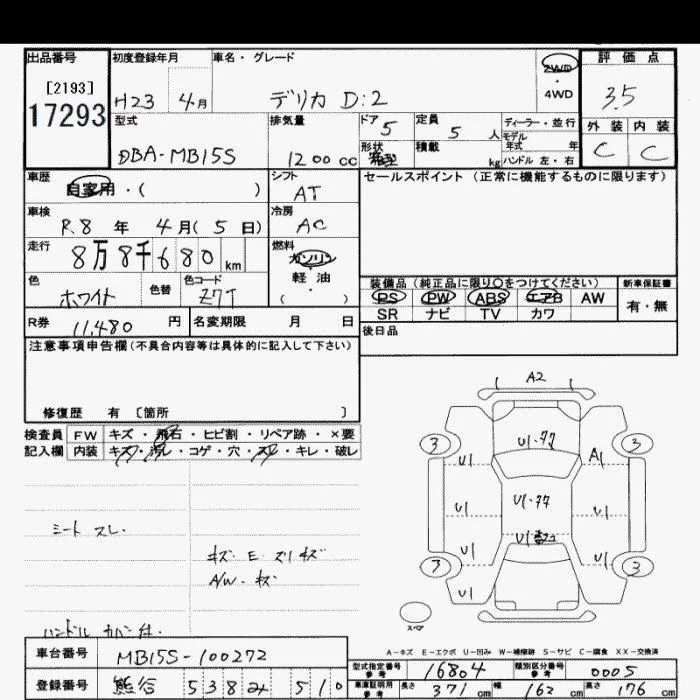 出品番号 初度登録年月 車名・グレード 2WD・4WD 評価点
[2193]
17293
H23 4月 デリカ D:2 3.5
型式 排気量 ドア 5 定員 5人 ディーラー・並行 外装 内装
モデル年式 年
DBA-MB15S 1200cc 形状 箱型 積載 kg ハンドル 左・右 C C
車歴 自家用・( ) シフト AT セールスポイント(正常に機能するものに限ります)
車検 R.8年 4月(5日) 冷房 AC
走行 8万8千680km 燃料 ガソリン・軽油・( )
色 ホワイト 色替 色コード Z7T
装備品(純正品に限り〇をつけてください) 新車保証書
PS PW ABS エアB AW 有・無
SR ナビ TV カワ
R券 11,480円 名変期限 月 日 後日品
注意事項申告欄(不具合内容等は具体的に記入して下さい)
修復歴 有 〔箇所 〕
検査員 FW キズ・飛石・ヒビ割・リペア跡・×要
記入欄 内装 キズ・汚レ・コゲ・穴・スレ・キレ・破レ
シート スレ.
キズ E スリキズ
A/W キズ
ハンドル カバー付.
A2
3 3
U1 A1
U1 U1 U1
U1 U1
3 3
U1
スペア
A-キズ E-エクボ U-凹み W-補修跡 S-サビ C-腐食 XX-交換済
車台番号 MB15S-100272
型式指定番号 参考 16804 類別区分番号 参考 0005
登録番号 熊谷 538 み 510
車庫証明用 参考 長さ 371cm 幅 162cm 高さ 176cm